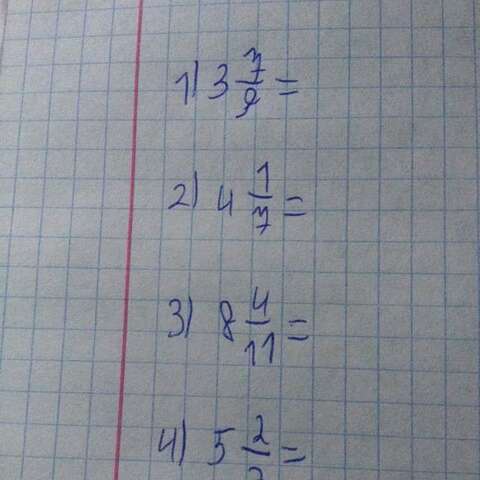 1) 3 7/9 =
2) 4 1/7 =
3) 8 4/11 =
4) 5 2/ =